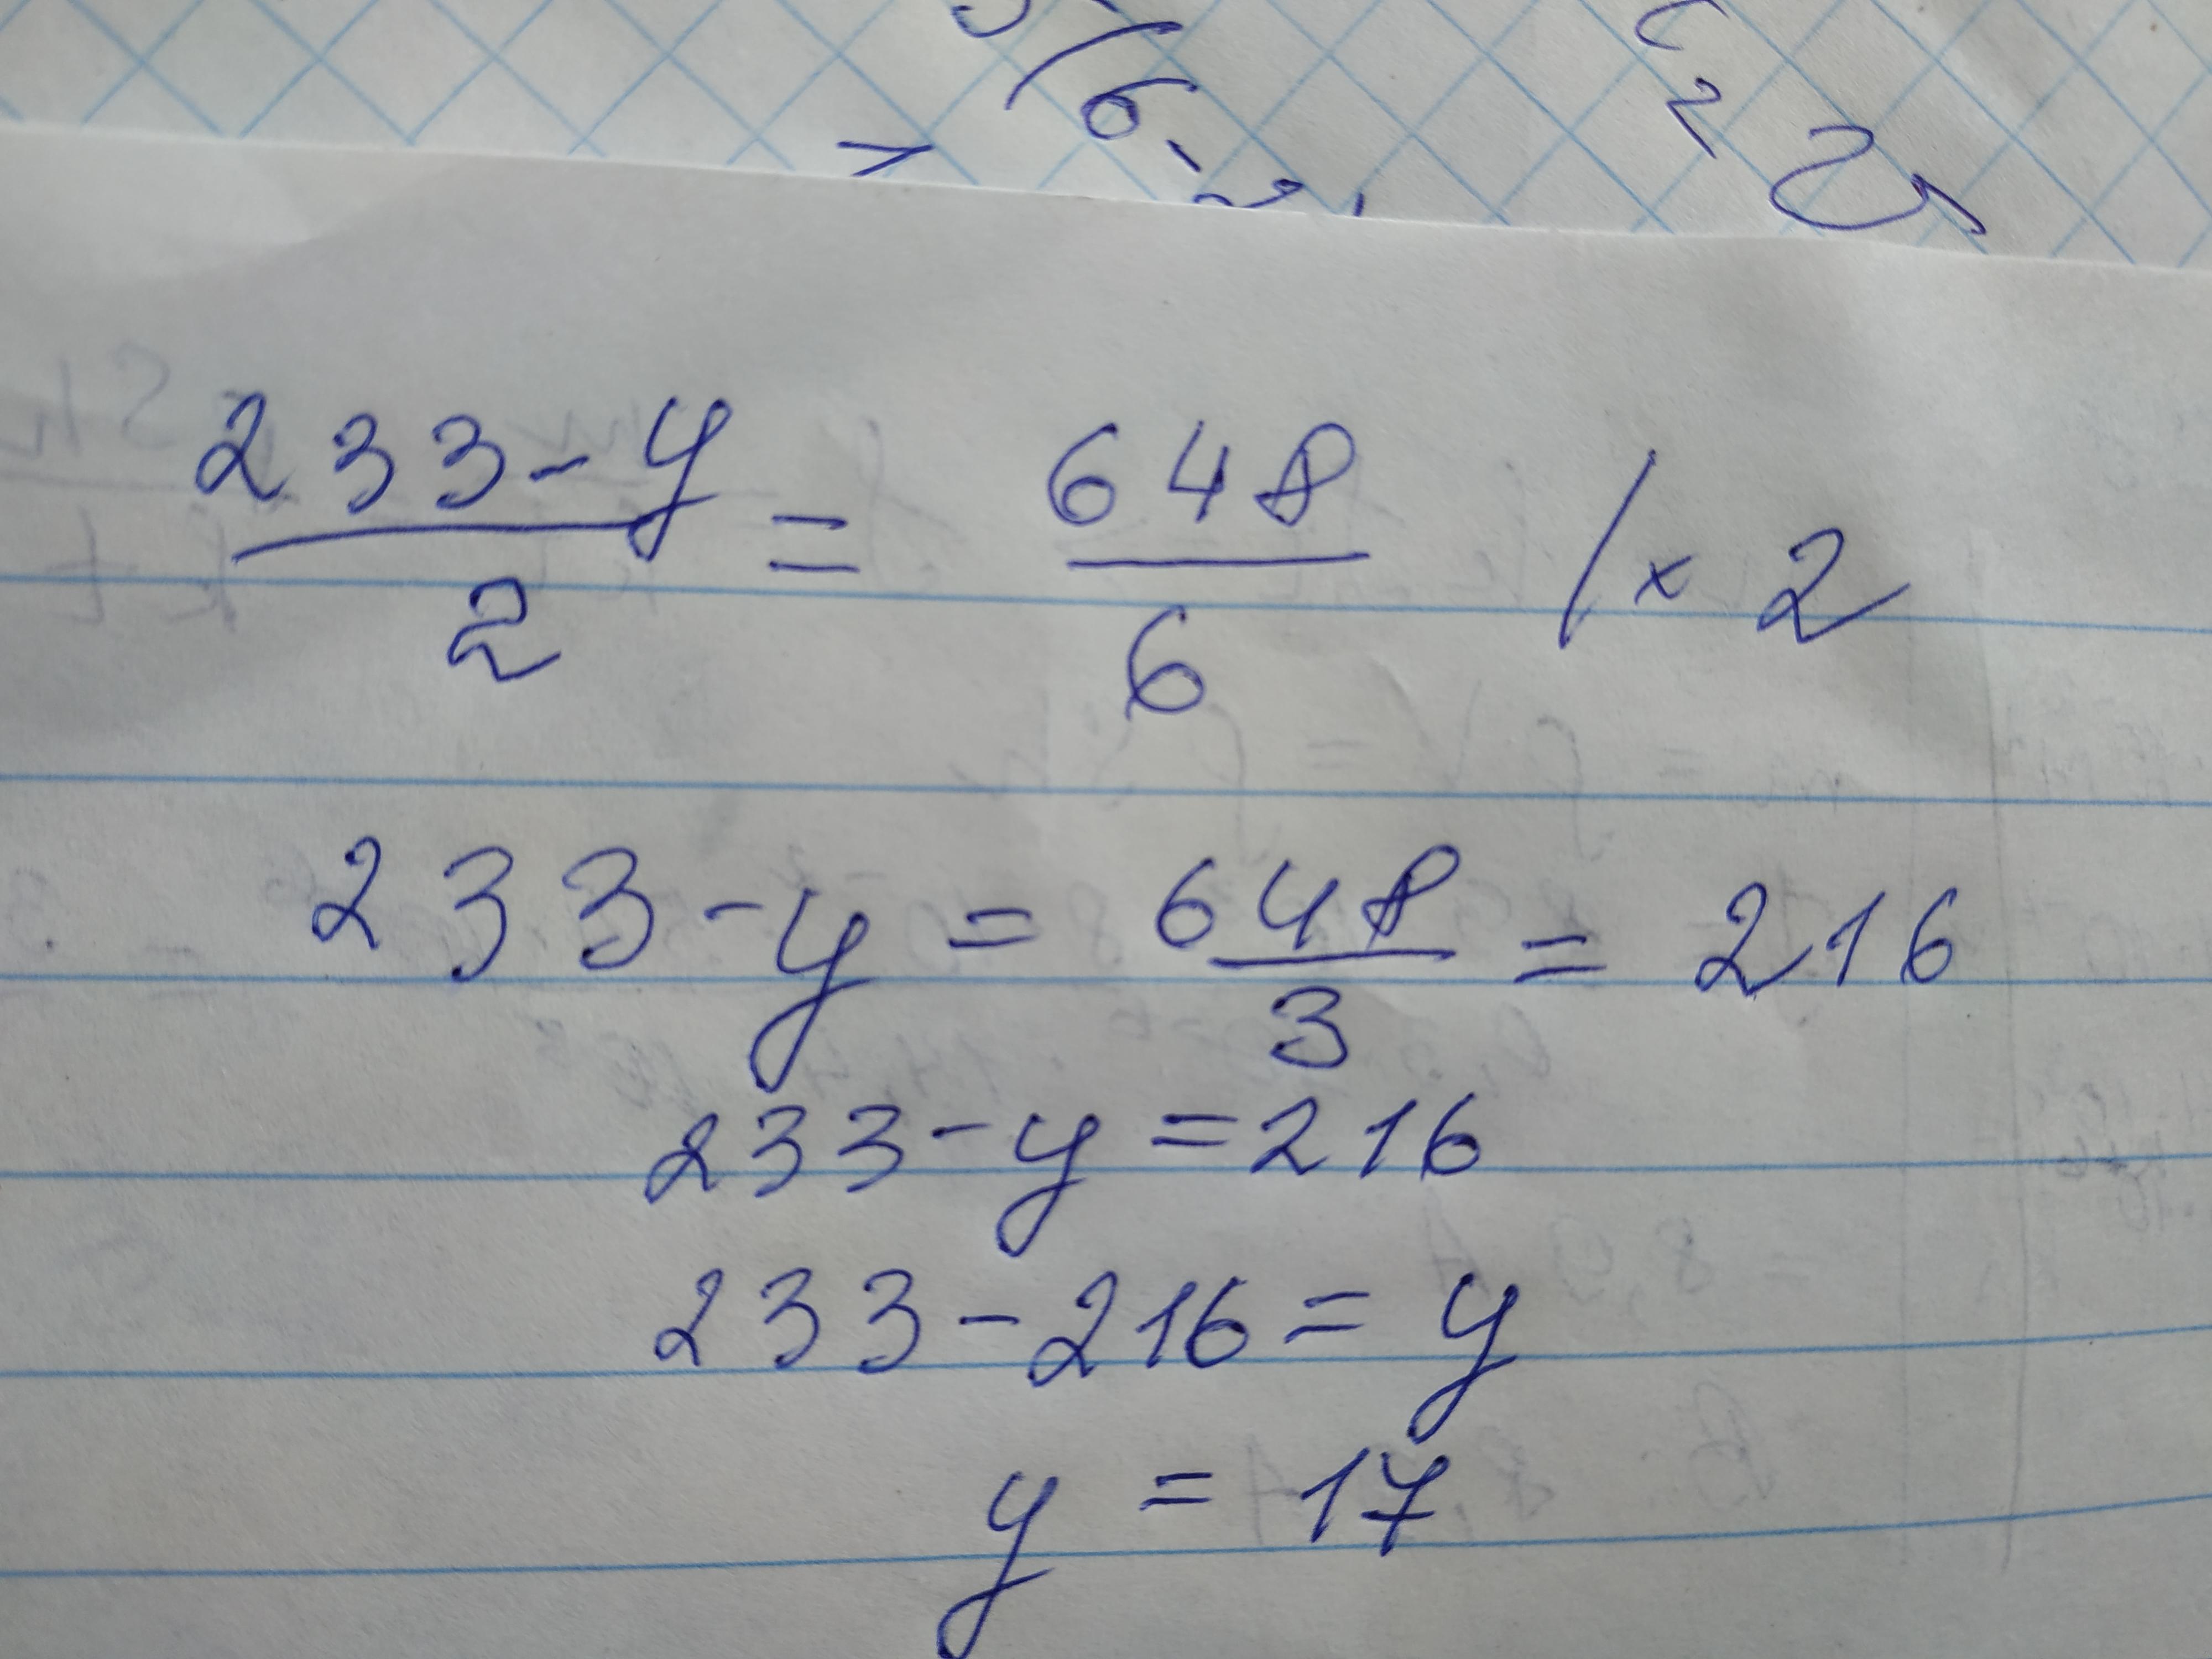 (233-y)/2 = 648/6 /×2
233-y = 648/3 = 216
233-y=216
233-216=y
y = 17